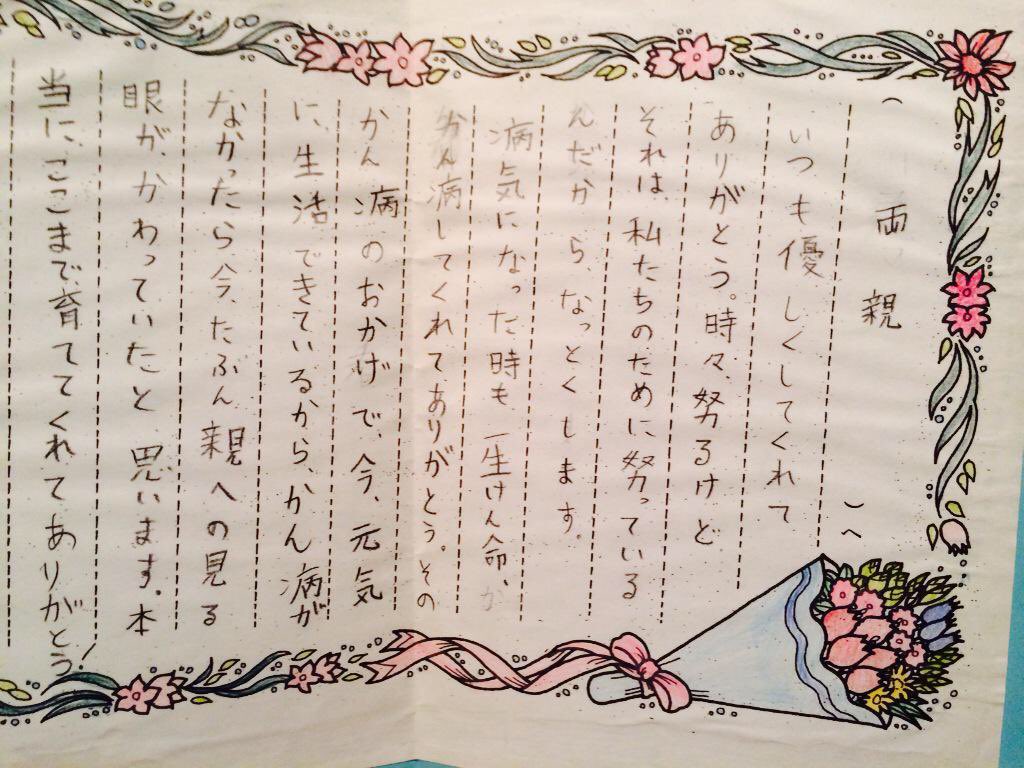 （両親）へ
いつも優しくしてくれて
ありがとう。時々、努るけど
それは、私たちのために努っている
んだから、なっとくします。
病気になった時も一生けん命、
かん病してくれてありがとう。その
かん病のおかげで、今、元気
に、生活できているから、かん病が
なかったら今、たぶん親への見る
眼が、かわっていたと思います。本
当に、ここまで育ててくれてありがとう！